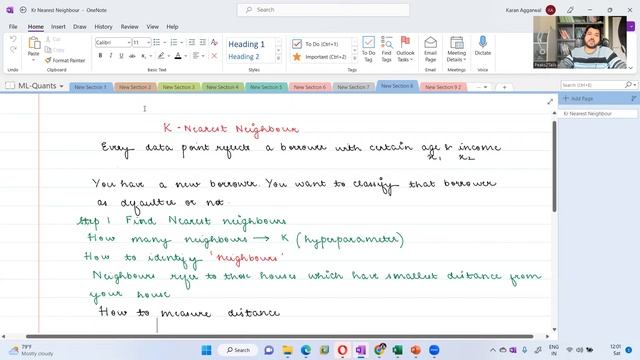 Kr Nearest Neighbour - OneNote
Search
Karan Aggarwal
KA
File Home Insert Draw History Review View Help
Paste
Cut
Copy
Format Painter
Clipboard
Calibri 11
Basic Text
Heading 1
Heading 2
Styles
To Do (Ctrl+1)
Important (Ctrl+2)
To Do Tag
Find Tags
Outlook Tasks
Tags
Email Page
Email
Meeting Details
Meetings
Dictate
Peaks2Tails
ML-Quants
New Section 1
New Section 2
New Section 3
New Section 4
New Section 5
New Section 6
New Section 7
New Section 8
New Section 9 2
Search (Ctrl+E)
Add Page
Kr Nearest Neighbour
K - Nearest Neighbour
Every data point reflects a borrower with certain age & income
x1 x2
You have a new borrower. You want to classify that borrower
as defaulter or not.
Step 1 Find Nearest neighbours
How many neighbours → K (hyperparameter)
How to identify 'neighbours'
Neighbours refer to those houses which have smallest distance from
your house
How to measure distance
79°F
Mostly cloudy
Search
ENG
IN
12:01
Sat